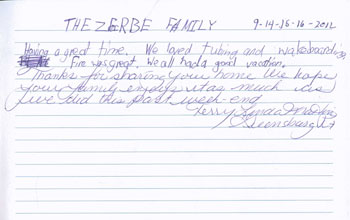 THE ZERBE FAMILY 9-14-15-16-2012
Having a great time. We loved tubing and wakeboarding
Fire was great. We all had a good vacation.
Thanks for sharing your home We hope
your family enjoys it as much as
we did this past week-end
Terry, Linda
Greensburg